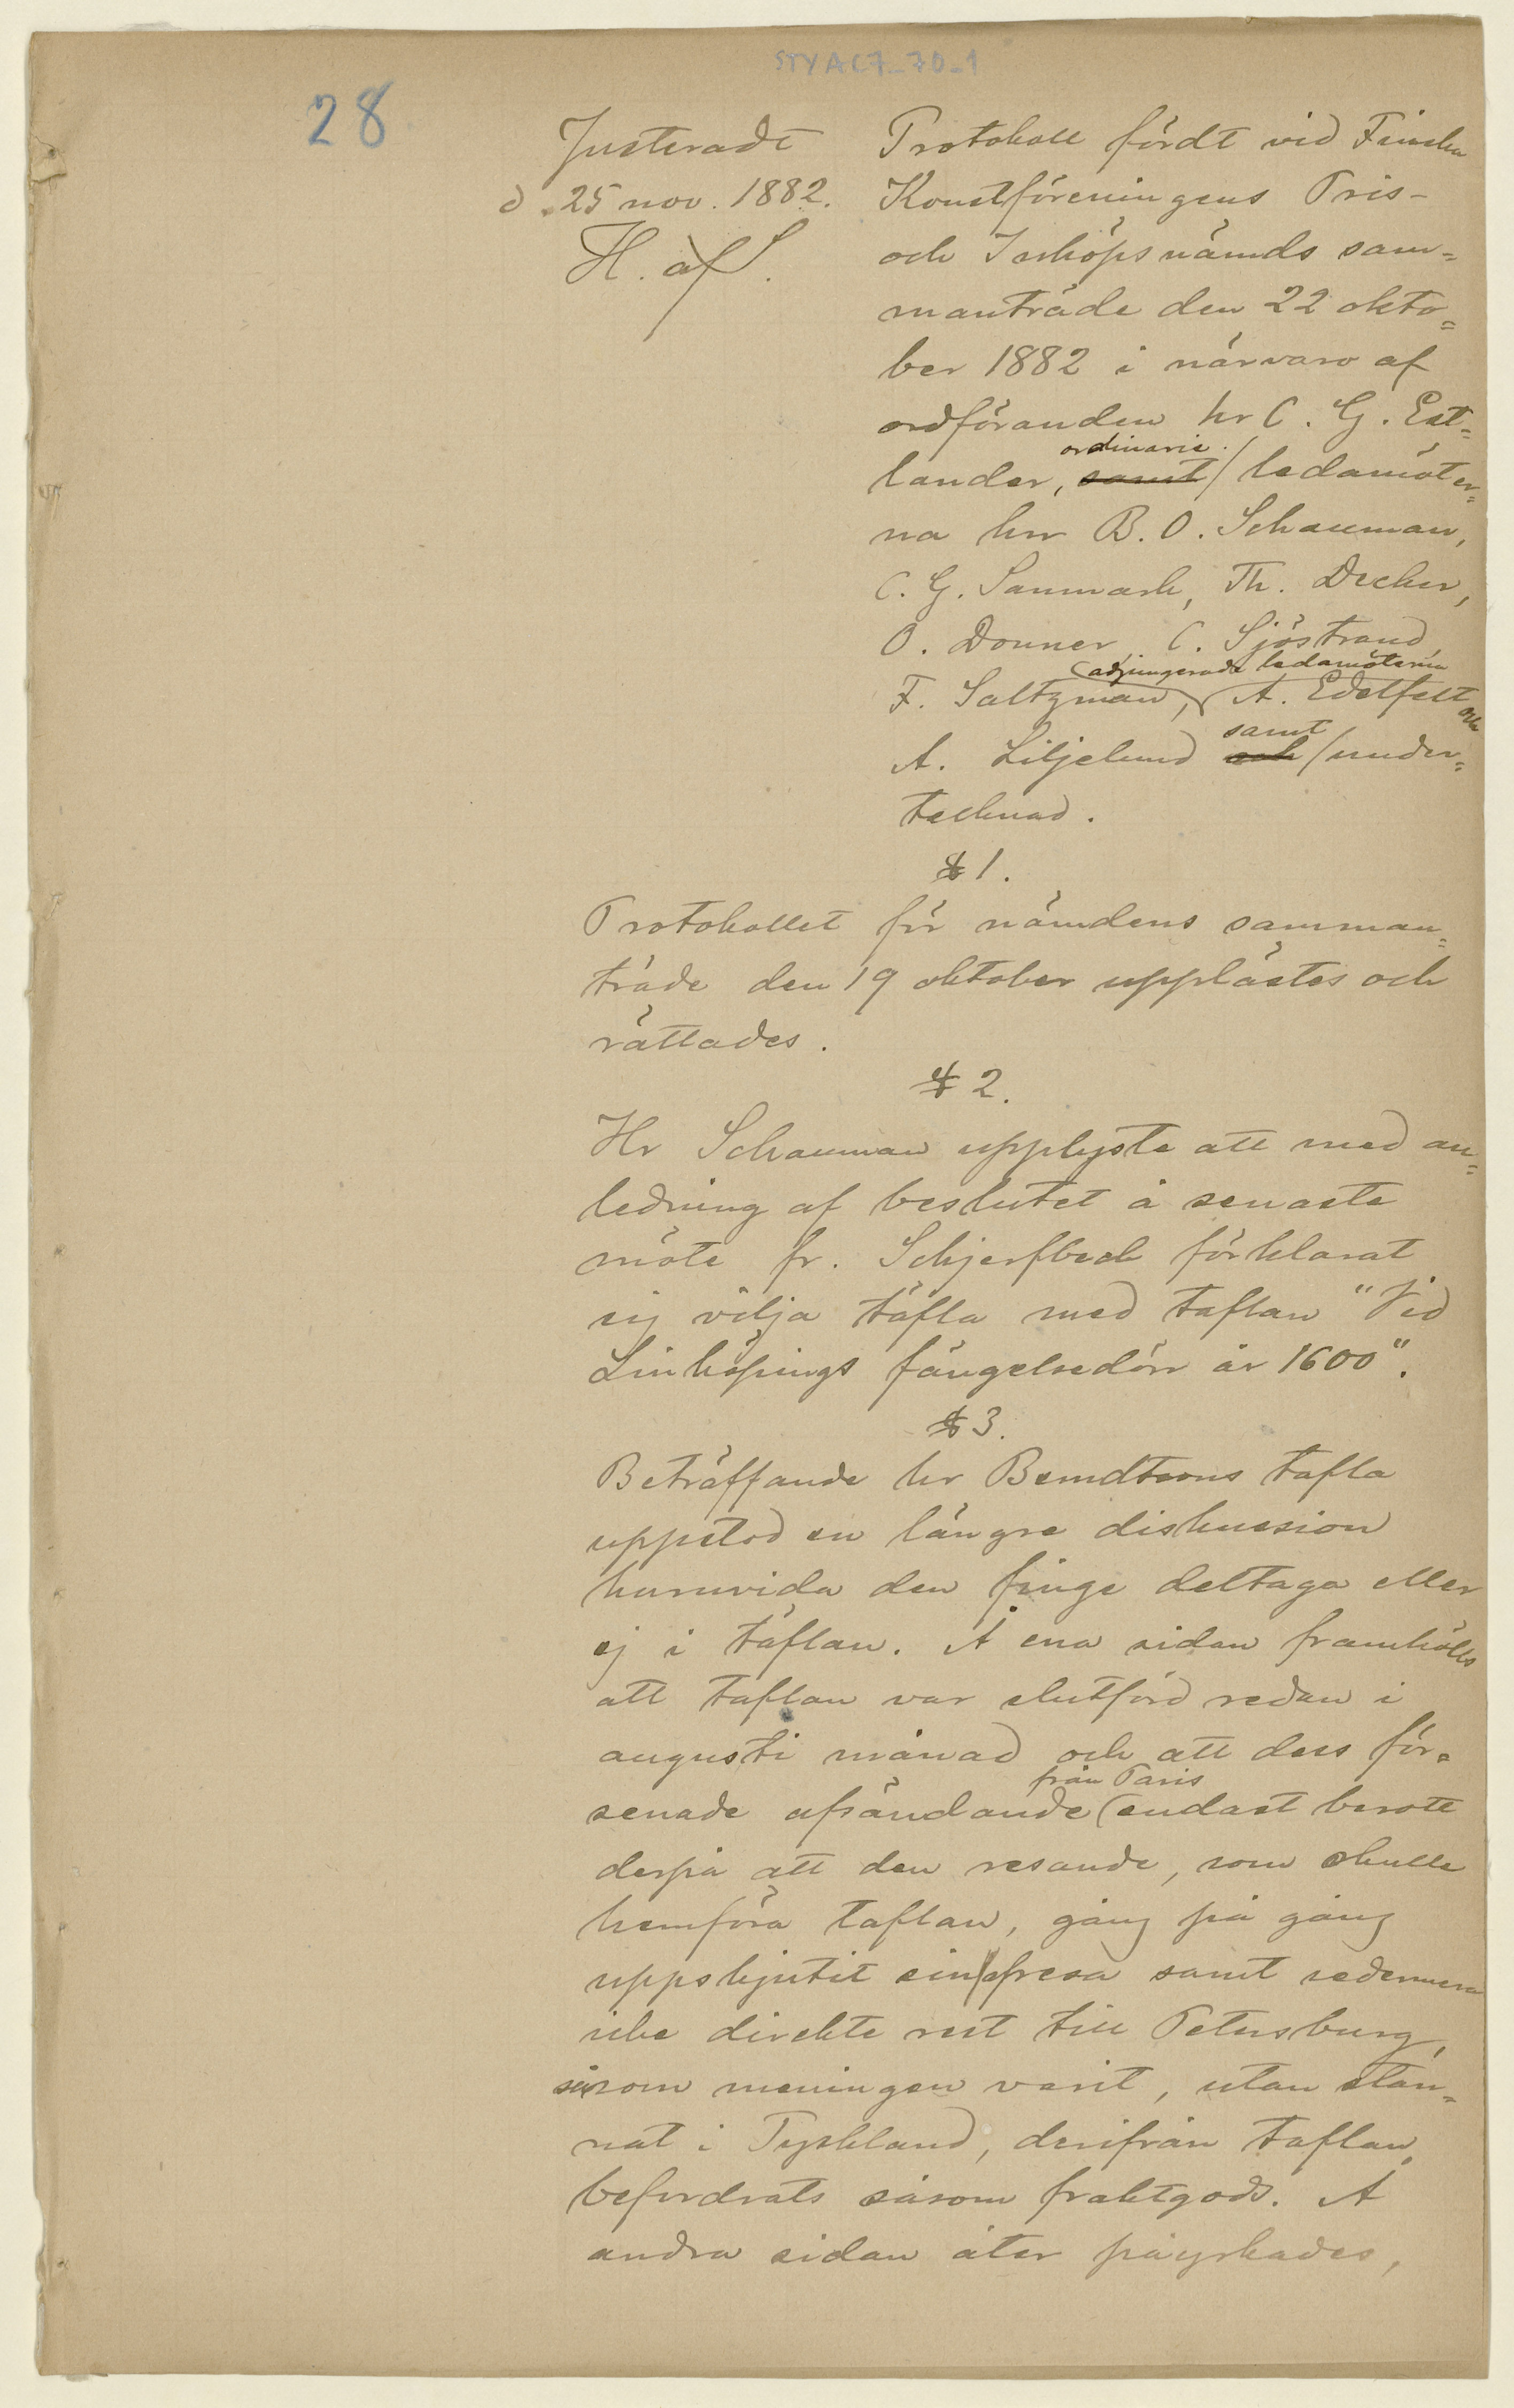 STYAC7_70_1
28
Justeradt
d. 25 nov. 1882.
H. af S.
Protokoll fördt vid Finska
Konstföreningens Pris-
och Inköpsnämds sam=
manträde den 22 okto=
ber 1882 i närvaro af
ordföranden hr C. G. Est=
ordinarie
lander, samt / ledamöter=
na hrr B. O. Schauman,
C. G. Sanmark, Th. Decker,
O. Donner, C. Sjöstrand,
adjungerade ledamöterna
F. Saltzman, A. Edelfelt och
samt
A. Liljelund och / under=
tecknad.
§ 1.
Protokollet för nämdens samman=
träde den 19 oktober upplästes och
rättades.
§ 2.
Hr Schauman upplyste att med an=
ledning af beslutet å senaste
möte fr. Schjerfbeck förklarat
sig vilja täfla med taflan "Vid
Linköpings fängelsedörr år 1600".
§ 3.
Beträffande hr Berndtsons tafla
uppstod en längre diskussion
huruvida den finge deltaga eller
ej i täflan. Å ena sidan framhölls
att taflan var slutförd redan i
augusti månad och att dess för=
från Paris
senade afsändande (endast berott
derpå att den resande, som skulle
hemföra taflan, gång på gång
uppskjutit sin afresa samt sedermera
icke direkte rest till Petersburg,
såsom meningen varit, utan stan=
nat i Tyskland, derifrån taflan
befordrats såsom fraktgods. Å
andra sidan åter påyrkades,